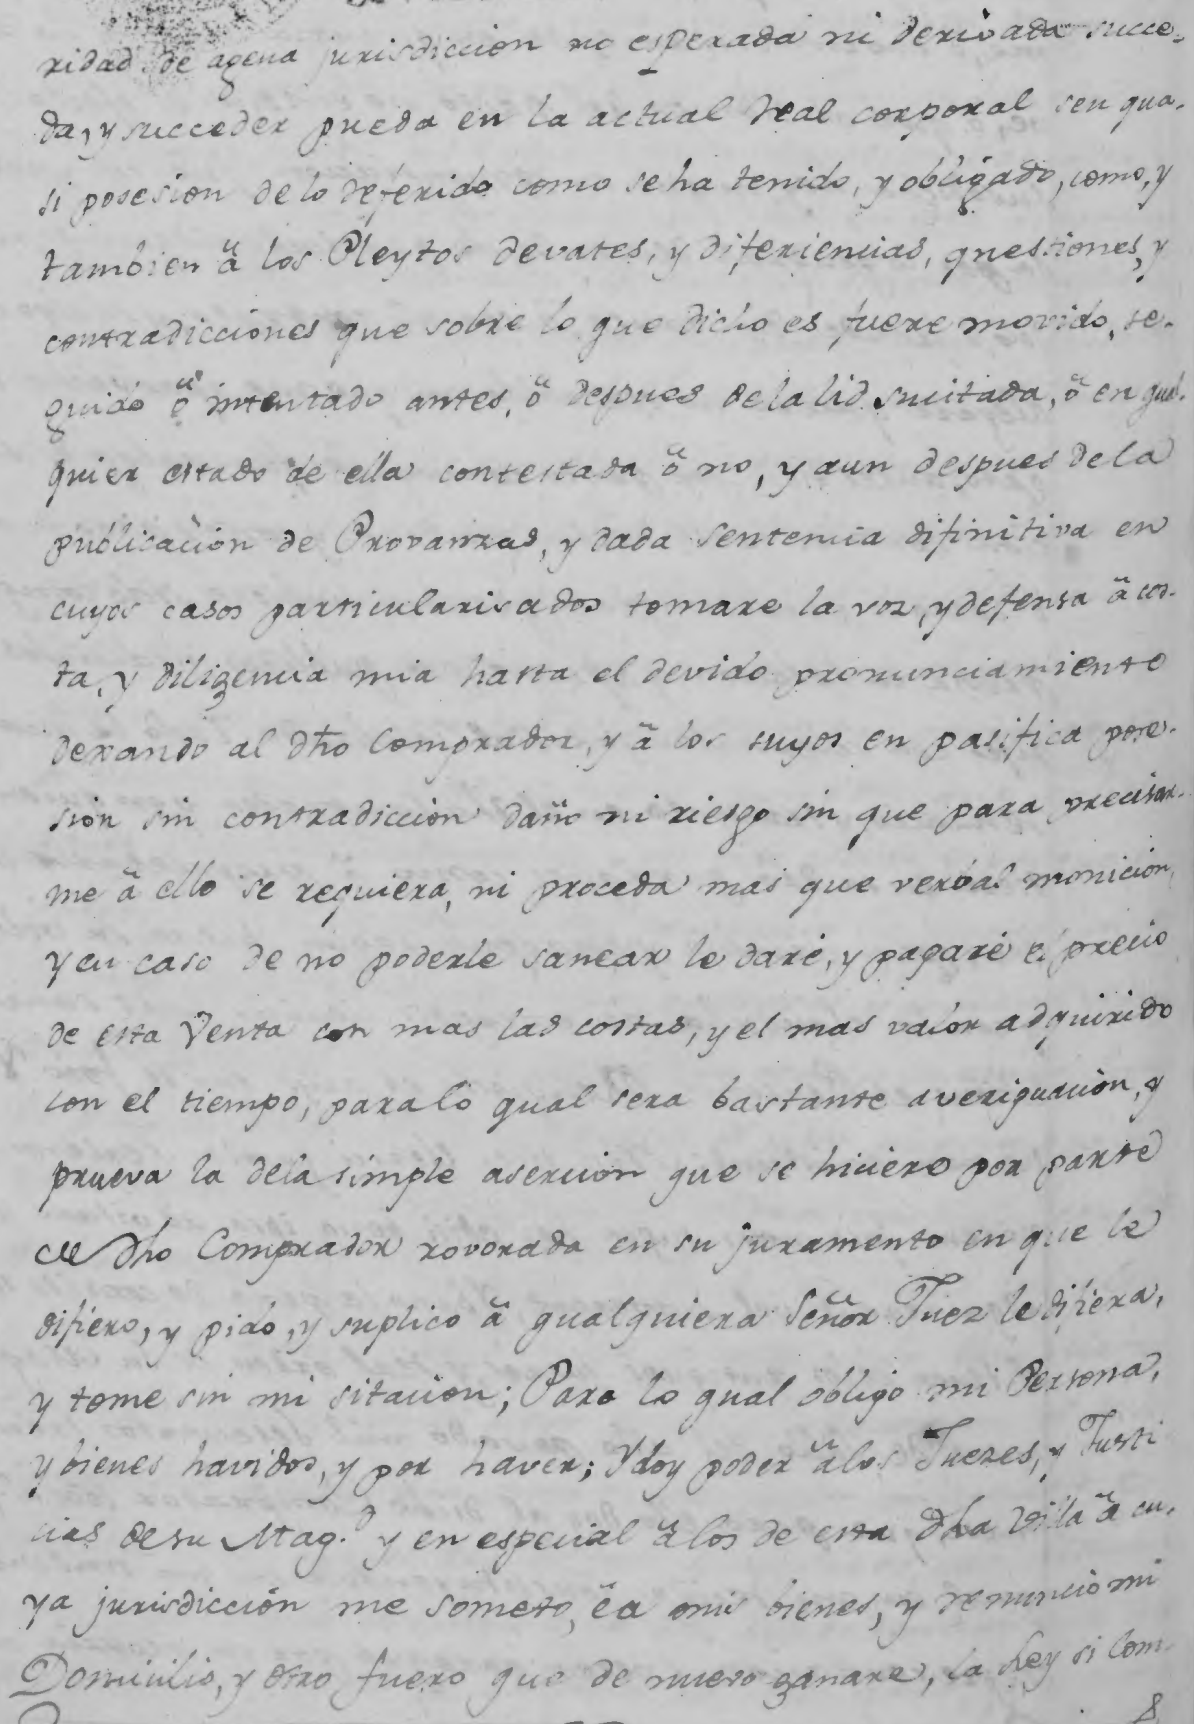 ridad de agena jurisdiccion no esperada ni derivada succe-
da, y succeder pueda en la actual real corporal seu qua-
si posesion de lo referido como se ha tenido, y obligado, como, y
tambien â los Pleytos devates, y diferiencias, questiones, y
contradicciones que sobre lo que dicho es fuere movido, se-
guido ô intentado antes, ô despues de la lid sucitada, ô en qual-
quier estado de ella contestada ô no, y aun despues de la
publicacion de Provanzas, y dada sentencia difinitiva en
cuyos casos particularisados tomare la voz, y defensa â cos-
ta, y diligencia mia hasta el devido pronunciamiento
dexando al dho Comprador, y â los suyos en pasifica pose-
sion sin contradiccion daño ni riesgo sin que para precisar-
me â ello se requiera, ni proceda mas que verbal monicion,
y en caso de no poderle sanear le daré, y pagaré el precio
de esta Venta con mas las costas, y el mas valor adquirido
con el tiempo, para lo qual sera bastante averiguacion, y
prueva la de la simple asercion que se hiciere por parte
de dho Comprador rovorada en su juramento en que le
difiero, y pido, y suplico â qualquiera Señor Juez le difiera,
y tome sin mi sitacion; Para lo qual obligo mi Persona,
y bienes havidos, y por haver; Y doy poder â los Juezes, y Justi
cias de su Mag.d y en especial â los de esta dha Villa â cu-
ya jurisdicción me someto, êa mis bienes, y renuncio mi
Domicilio, y otro fuero que de nuevo ganare, la Ley si Com-